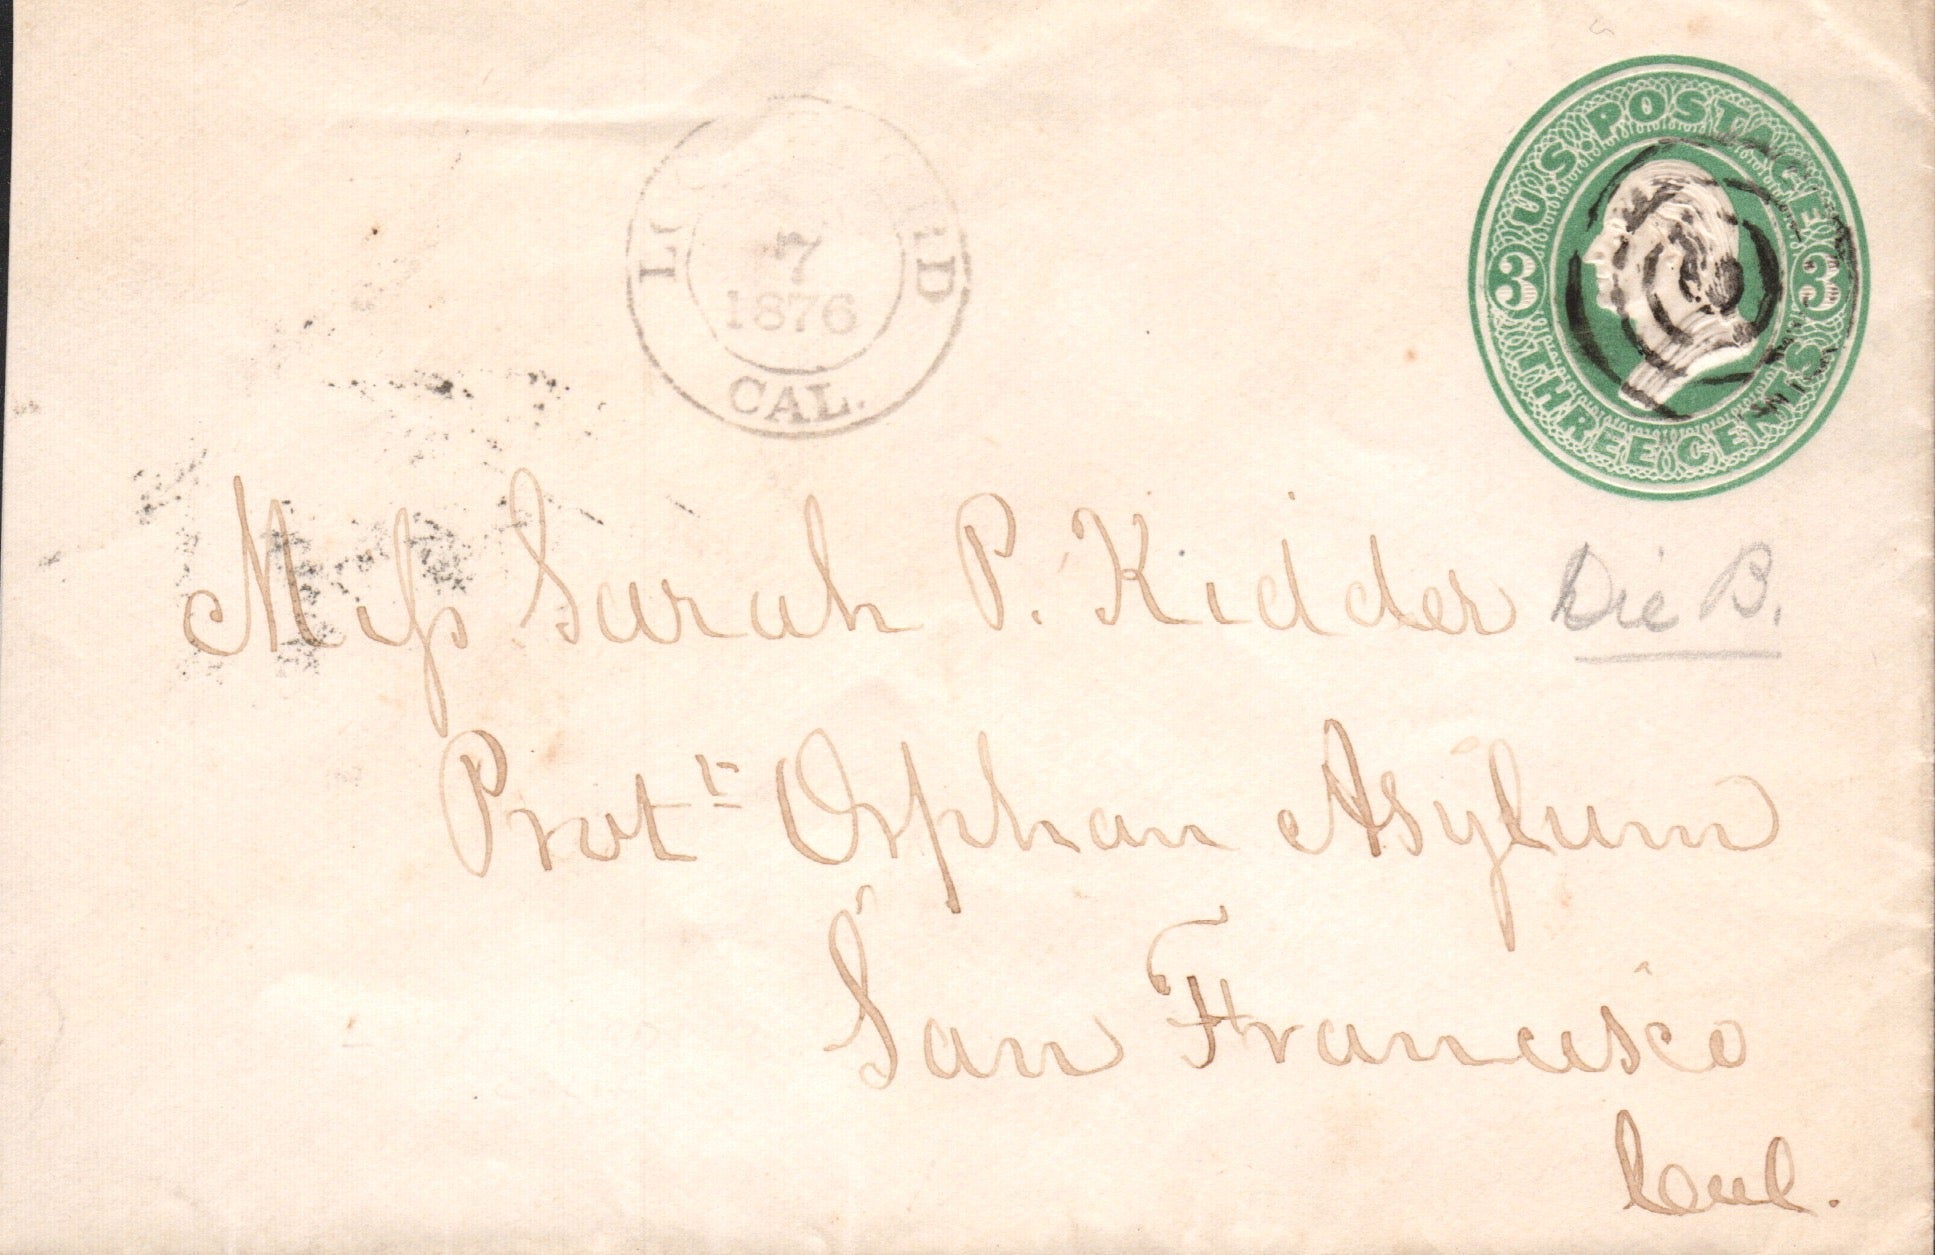 U.S. POSTAGE
3 3
THREE CENTS
7
1876
CAL.
Miſs Sarah P. Kidder
Die B.
Prot^t Orphan Asylum
San Francisco
Cal.